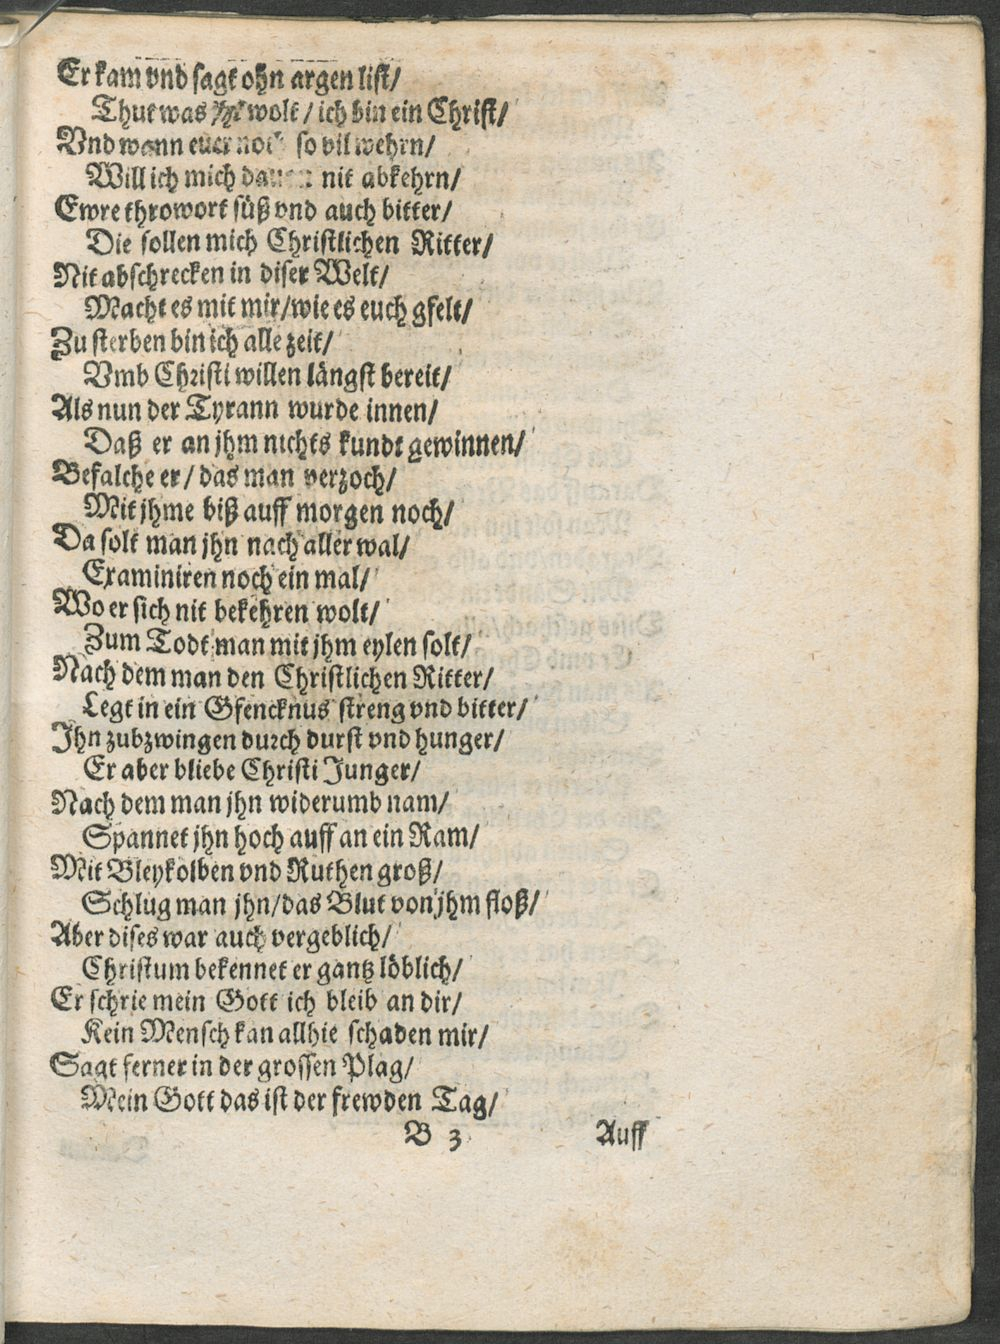 Er kam vnd sagt ohn argen list/
Thut was jhr wolt / ich bin ein Christ/
Vnd wann euer noch so vil wehrn/
Will ich mich nit abkehrn/
Ewre throwort süß vnd auch bitter/
Die sollen mich Christlichen Ritter/
Nit abschrecken in diser Welt/
Macht es mit mir/wie es euch gfelt/
Zu sterben bin ich alle zeit/
Vmb Christi willen längst bereit/
Als nun der Tyrann wurde innen/
Daß er an jhm nichts kundt gewinnen/
Befalche er / das man verzoch/
Mit jhme biß auff morgen noch/
Da solt man jhn nach aller wal/
Examiniren noch ein mal/
Wo er sich nit bekehren wolt/
Zum Todt man mit jhm eylen solt/
Nach dem man den Christlichen Ritter/
Legt in ein Gfencknus streng vnd bitter/
Jhn zubzwingen durch durst vnd hunger/
Er aber bliebe Christi Junger/
Nach dem man jhn widerumb nam/
Spannet jhn hoch auff an ein Ram/
Mit Bleykolben vnd Ruthen groß/
Schlug man jhn/das Blut von jhm floß/
Aber dises war auch vergeblich/
Christum bekennet er gantz löblich/
Er schrie mein Gott ich bleib an dir/
Kein Mensch kan allhie schaden mir/
Sagt ferner in der grossen Plag/
Mein Gott das ist der frewden Tag/
B 3 Auff